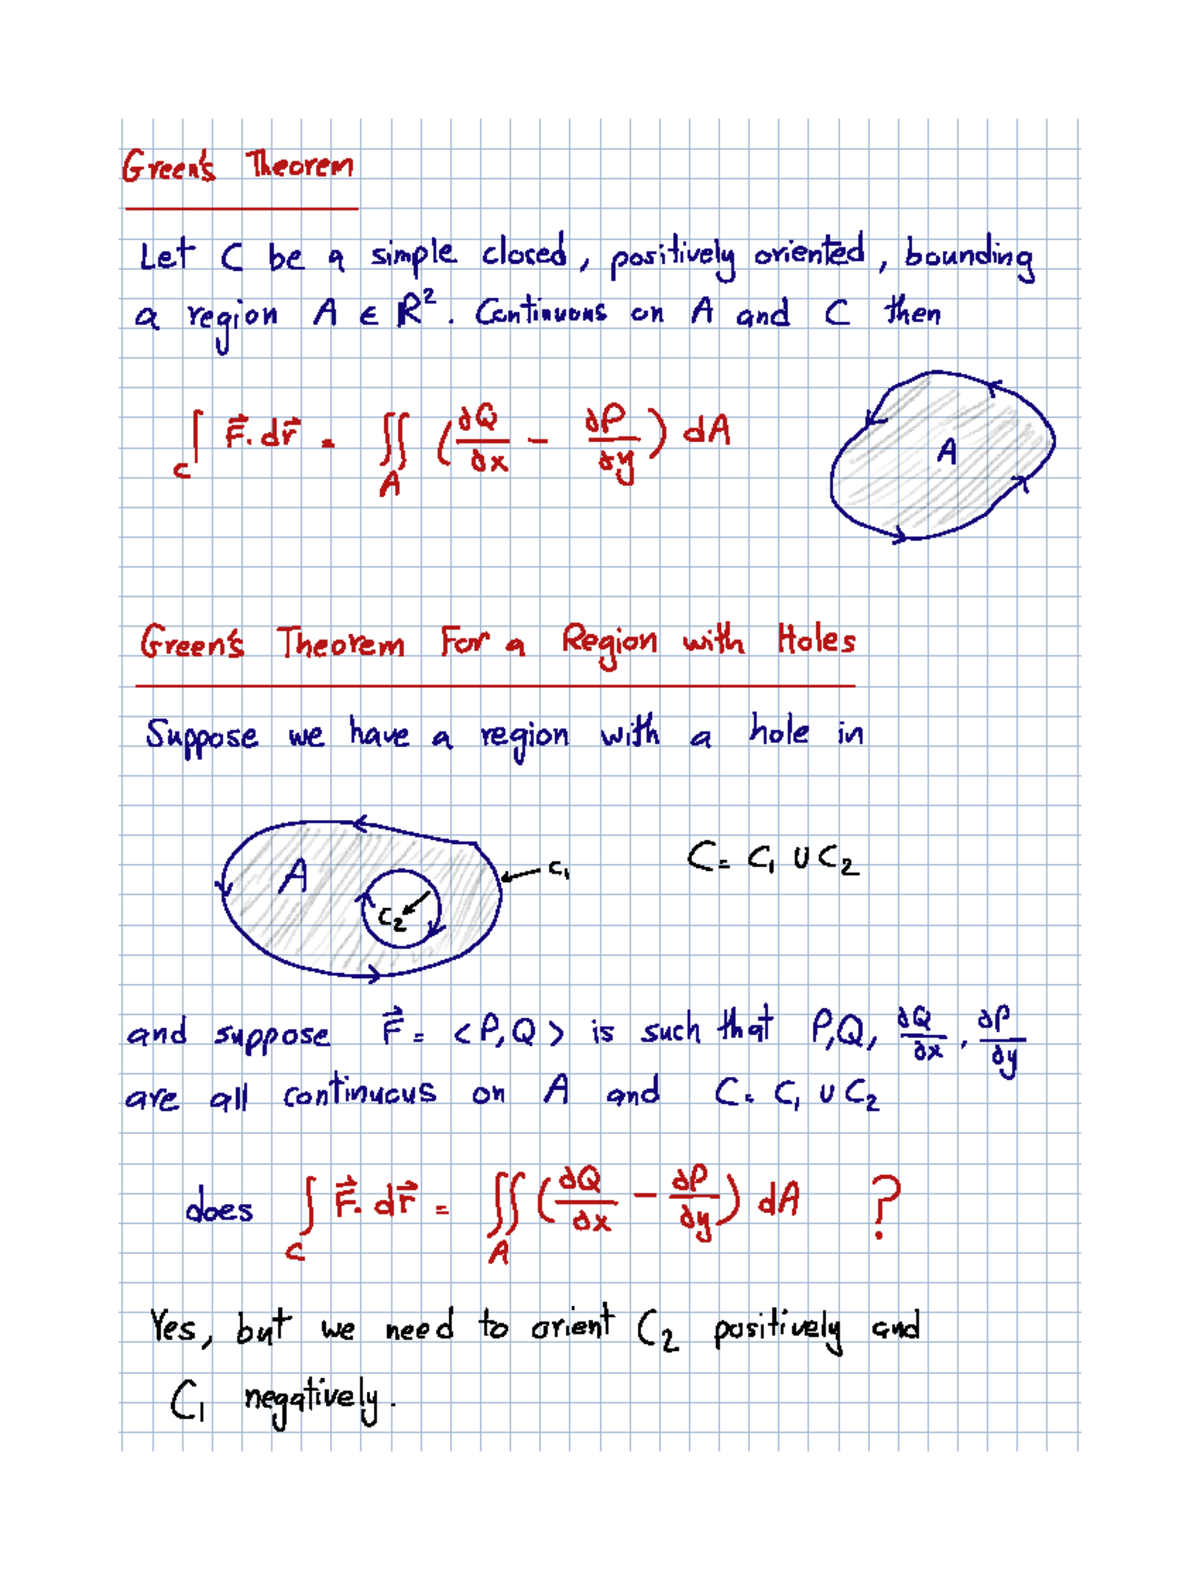 Green's Theorem
Let C be a simple closed, positively oriented, bounding
a region A ∈ R². Continuous on A and C then
∫_C F⃗. dr⃗ = ∬_A (∂Q/∂x − ∂P/∂y) dA
A
Green's Theorem For a Region with Holes
Suppose we have a region with a hole in
A
C₁
C₂
C = C₁ ∪ C₂
and suppose F⃗ = <P,Q> is such that P,Q, ∂Q/∂x, ∂P/∂y
are all continuous on A and C = C₁ ∪ C₂
does ∫_C F⃗. dr⃗ = ∬_A (∂Q/∂x − ∂P/∂y) dA ?
Yes, but we need to orient C₂ positively and
C₁ negatively.